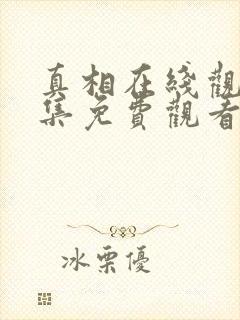 真相在綫觀
集免費觀看
冰栗優